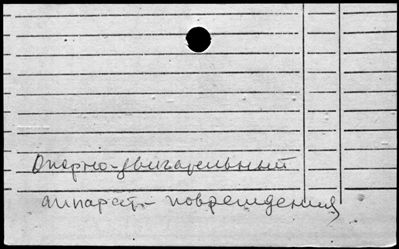 Опорно-двигательный
аппарат - повреждения